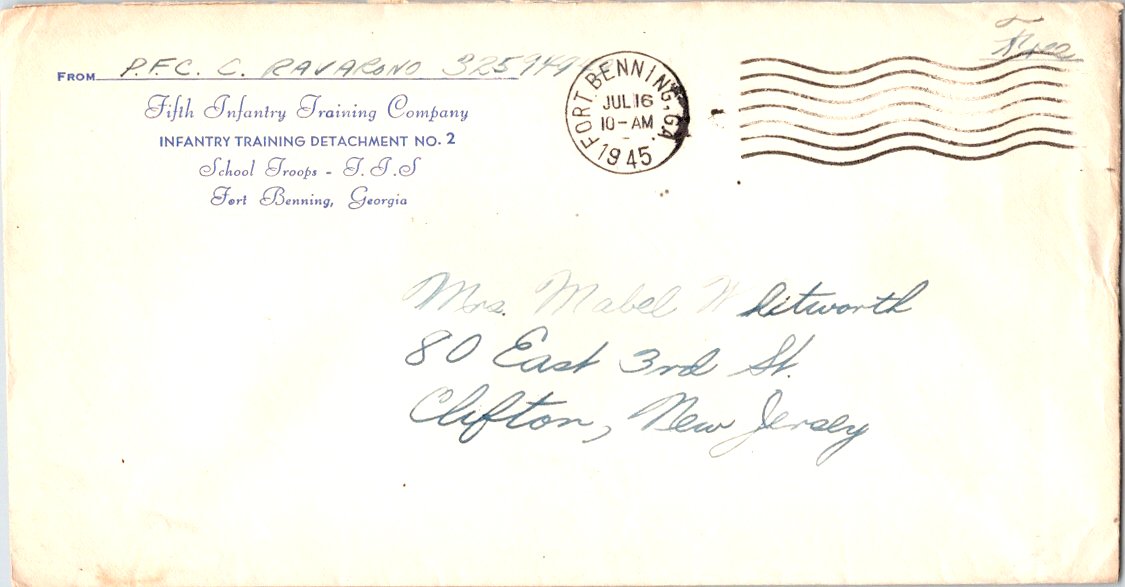 FROM P.F.C. C. RAVARONO
Fifth Infantry Training Company
INFANTRY TRAINING DETACHMENT NO. 2
School Troops - T.I.S
Fort Benning, Georgia
FORT BENNING, GA.
JUL 16
10-AM
1945
Free
Mrs. Mabel Whitworth
80 East 3rd St.
Clifton, New Jersey